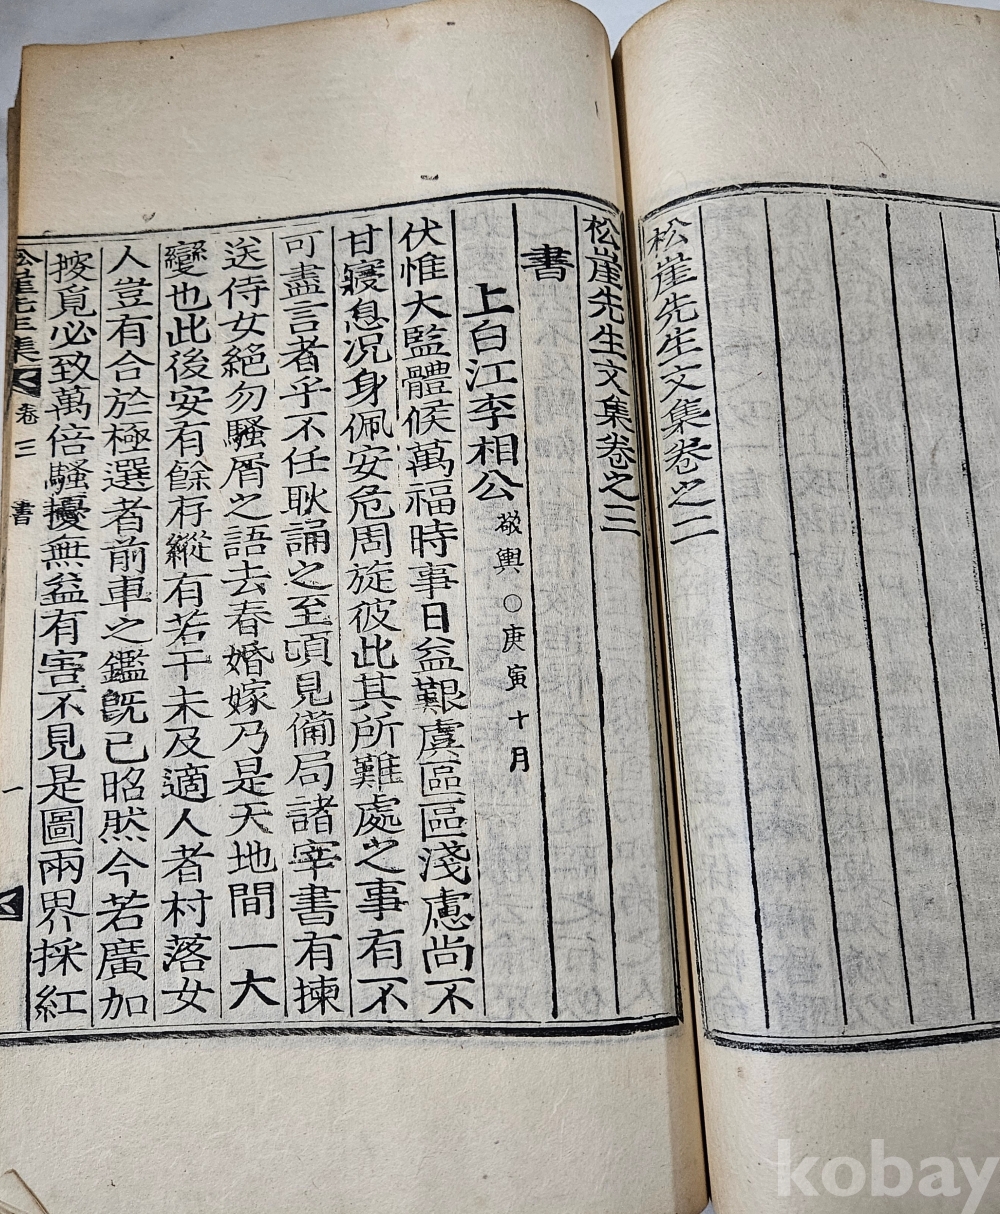 松崖先生文集卷之二
松崖先生文集卷之三
書
上白江李相公 敬輿○庚寅十月
伏惟大監體候萬福時事日益艱虞區區淺慮尚不
甘寢息况身佩安危周旋彼此其所難處之事有不
可盡言者乎不任耿誦之至頃見備局諸宰書有揀
送侍女絕勿騷屑之語去春婚嫁乃是天地間一大
變也此後安有餘存縱有若干未及適人者村落女
人豈有合於極選者前車之鑑旣已昭然今若廣加
搜覓必致萬倍騷擾無益有害不見是圖兩界採紅
松崖先生集 卷三 書 一
kobay